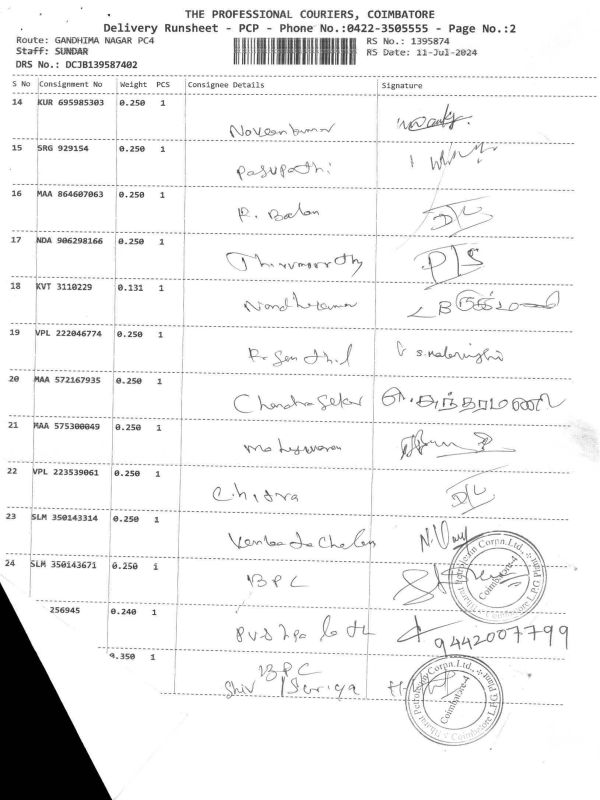 THE PROFESSIONAL COURIERS, COIMBATORE
Delivery Runsheet - PCP - Phone No.:0422-3505555 - Page No.:2
Route: GANDHIMA NAGAR PC4
RS No.: 1395874
Staff: SUNDAR
RS Date: 11-Jul-2024
DRS No.: DCJB139587402
S No Consignment No Weight PCS Consignee Details Signature
14 KUR 695985303 0.250 1
Naveenkumar
15 SRG 929154 0.250 1
Pasupathi
16 MAA 864607063 0.250 1
R. Balan D/C
17 NDA 906298166 0.250 1
Thirumoorthy P/S
18 KVT 3110229 0.131 1
Nandhakumar
19 VPL 222046774 0.250 1
P. Senthil
20 MAA 572167935 0.250 1
Chandra Sekar
21 MAA 575300049 0.250 1
Maheswaran
22 VPL 223539061 0.250 1
Chitra D/C
23 SLM 350143314 0.250 1
Venkatachalam
24 SLM 350143671 0.250 1
BPC
Coimbatore-4
256945 0.240 1
9442007799
9.350 1
BPC
Shiv / Suriya
Coimbatore-4